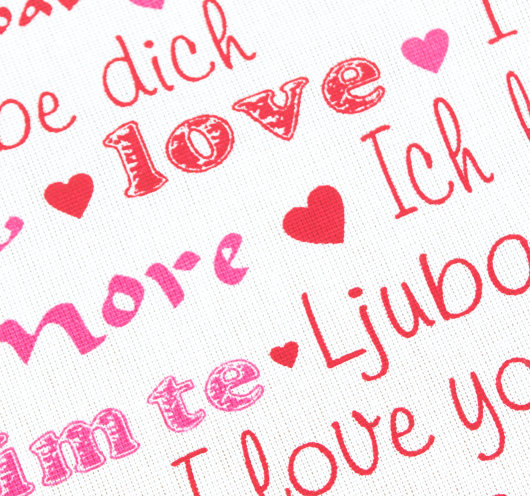 be dich I
love
more Ich
im te Ljub
I love yo